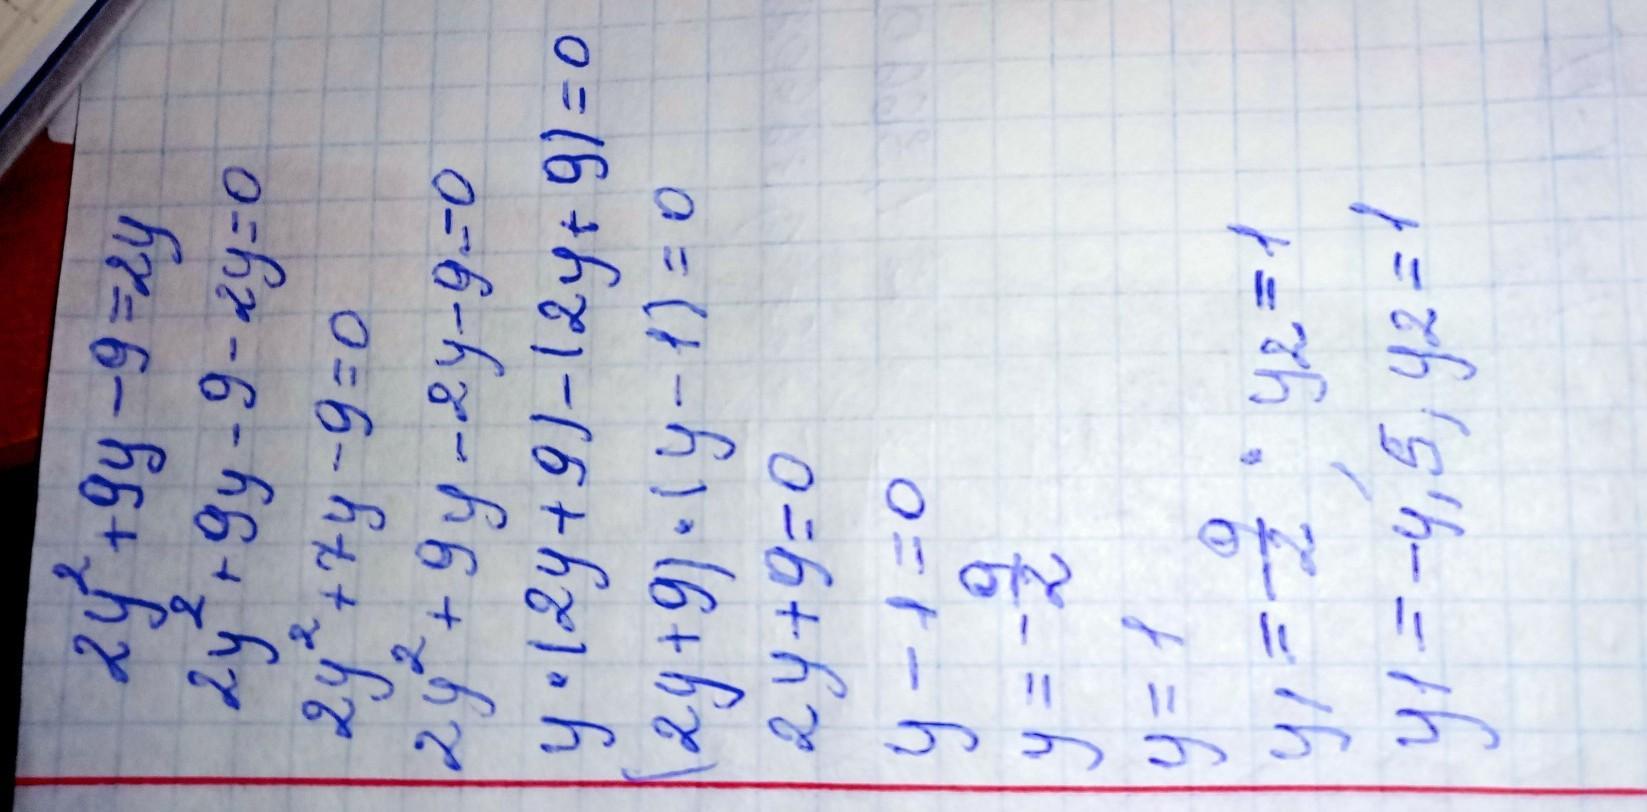 2y²+9y-9=2y
2y²+9y-9-2y=0
2y²+7y-9=0
2y²+9y-2y-9=0
y·(2y+9)-(2y+9)=0
(2y+9)·(y-1)=0
2y+9=0
y-1=0
y=-9/2
y=1
y1=-9/2, y2=1
y1=-4,5, y2=1